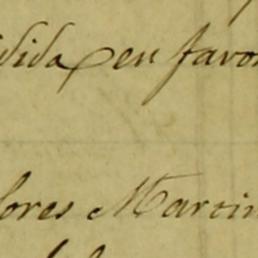 dida en favor
lores Martin